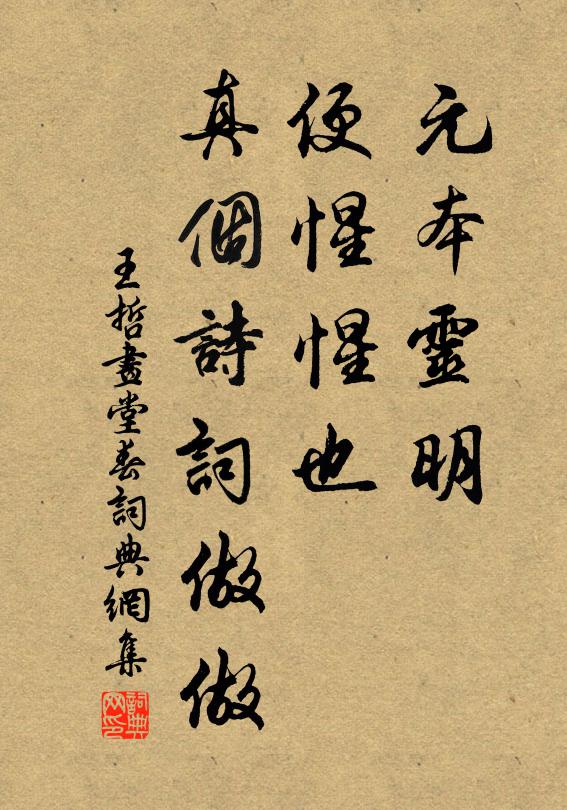 元本靈明
便惺惺也
真個詩詞做做
王哲畫堂春詞典網集
詞典
网印